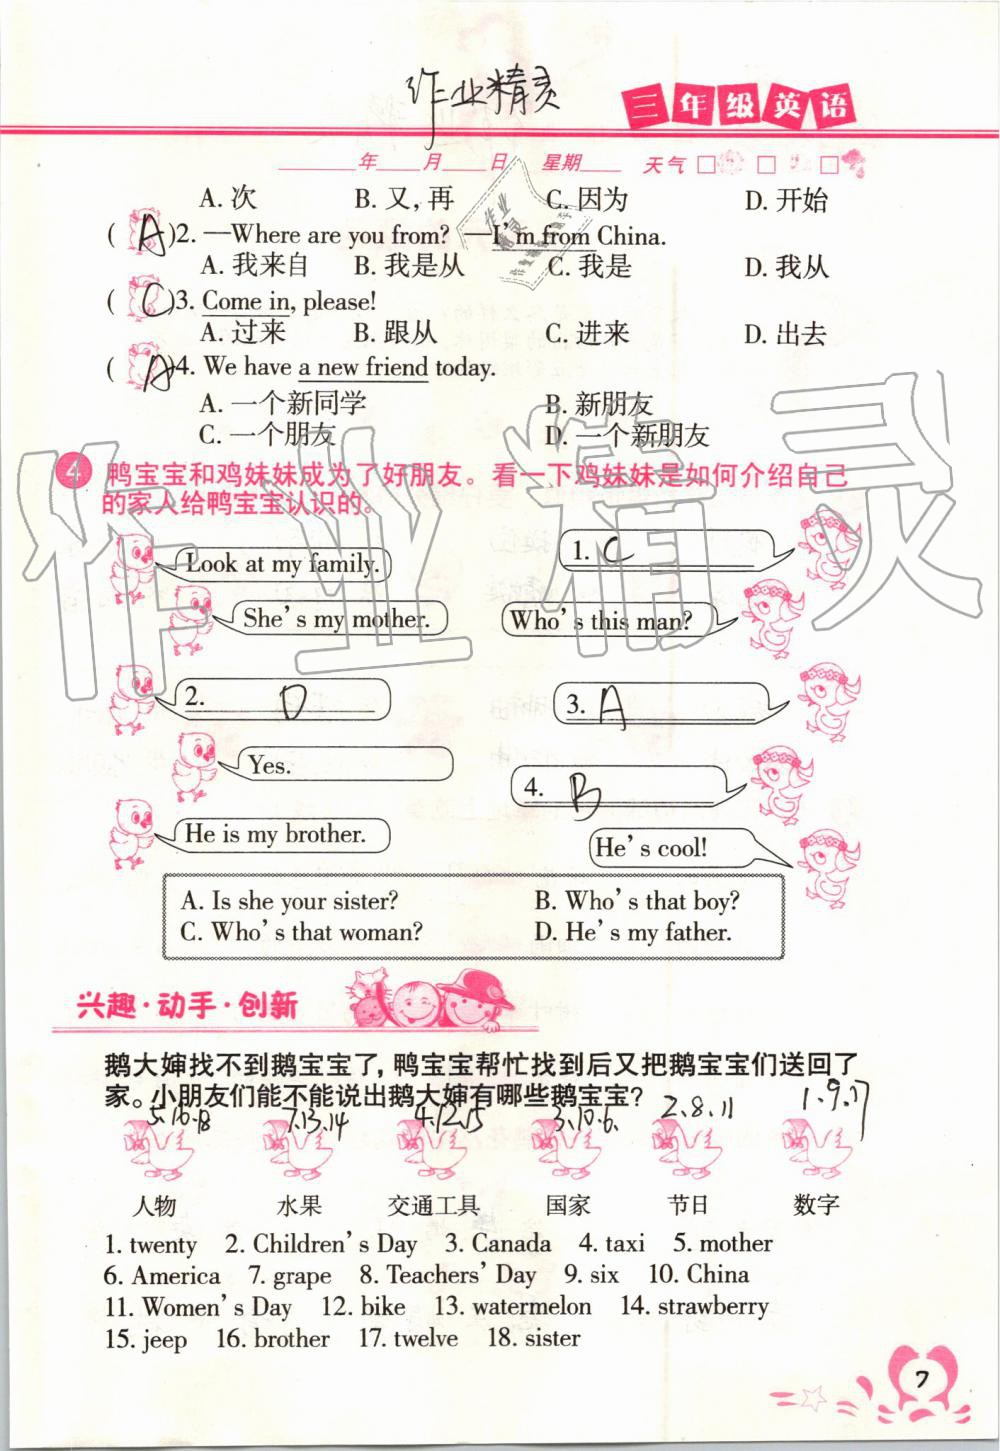 作业精灵
三年级英语
____年____月____日 星期____ 天气□ □ □
A. 次 B. 又，再 C. 因为 D. 开始
( A )2. —Where are you from? —I'm from China.
A. 我来自 B. 我是从 C. 我是 D. 我从
( C )3. Come in, please!
A. 过来 B. 跟从 C. 进来 D. 出去
( D )4. We have a new friend today.
A. 一个新同学 B. 新朋友
C. 一个朋友 D. 一个新朋友
4 鸭宝宝和鸡妹妹成为了好朋友。看一下鸡妹妹是如何介绍自己
的家人给鸭宝宝认识的。
Look at my family.
1. C
She's my mother.
Who's this man?
2. D
3. A
Yes.
4. B
He is my brother.
He's cool!
A. Is she your sister? B. Who's that boy?
C. Who's that woman? D. He's my father.
兴趣·动手·创新
鹅大婶找不到鹅宝宝了，鸭宝宝帮忙找到后又把鹅宝宝们送回了
家。小朋友们能不能说出鹅大婶有哪些鹅宝宝？
5.16.18 7.13.14 4.12.15 3.10.6. 2.8.11 1.9.17
人物 水果 交通工具 国家 节日 数字
1. twenty 2. Children's Day 3. Canada 4. taxi 5. mother
6. America 7. grape 8. Teachers' Day 9. six 10. China
11. Women's Day 12. bike 13. watermelon 14. strawberry
15. jeep 16. brother 17. twelve 18. sister
7
作业精灵